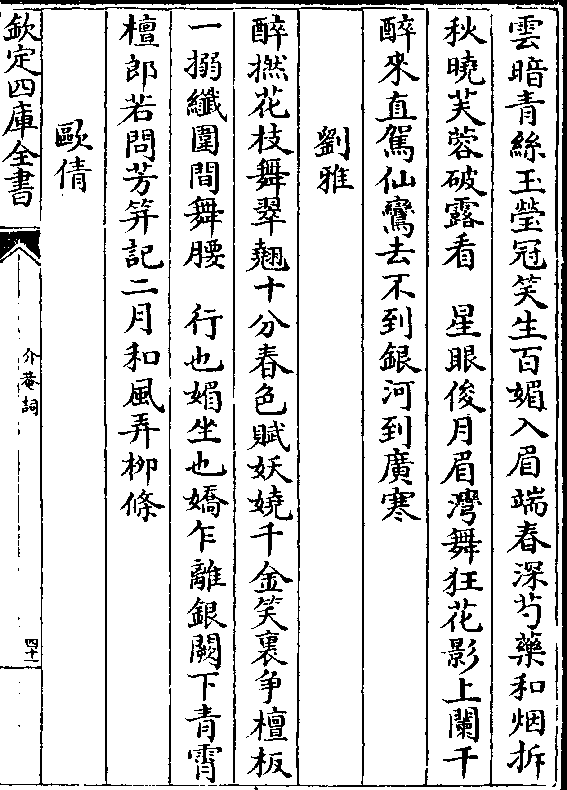 雲暗青絲玉瑩冠笑生百媚入眉端春深芍藥和烟拆
秋曉芙蓉破露看　星眼俊月眉灣舞狂花影上闌干
醉來直駕仙鸞去不到銀河到廣寒
劉雅
醉撚花枝舞翠翹十分春色賦妖嬈千金笑裏爭檀板
一搦纖圍間舞腰　行也媚坐也嬌乍離銀闕下青霄
檀郎若問芳笄記二月和風弄柳條
歐倩
欽定四庫全書
介菴詞
四十